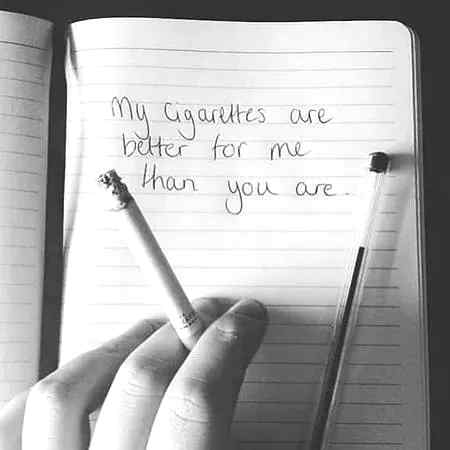 My cigarettes are
better for me
than you are.